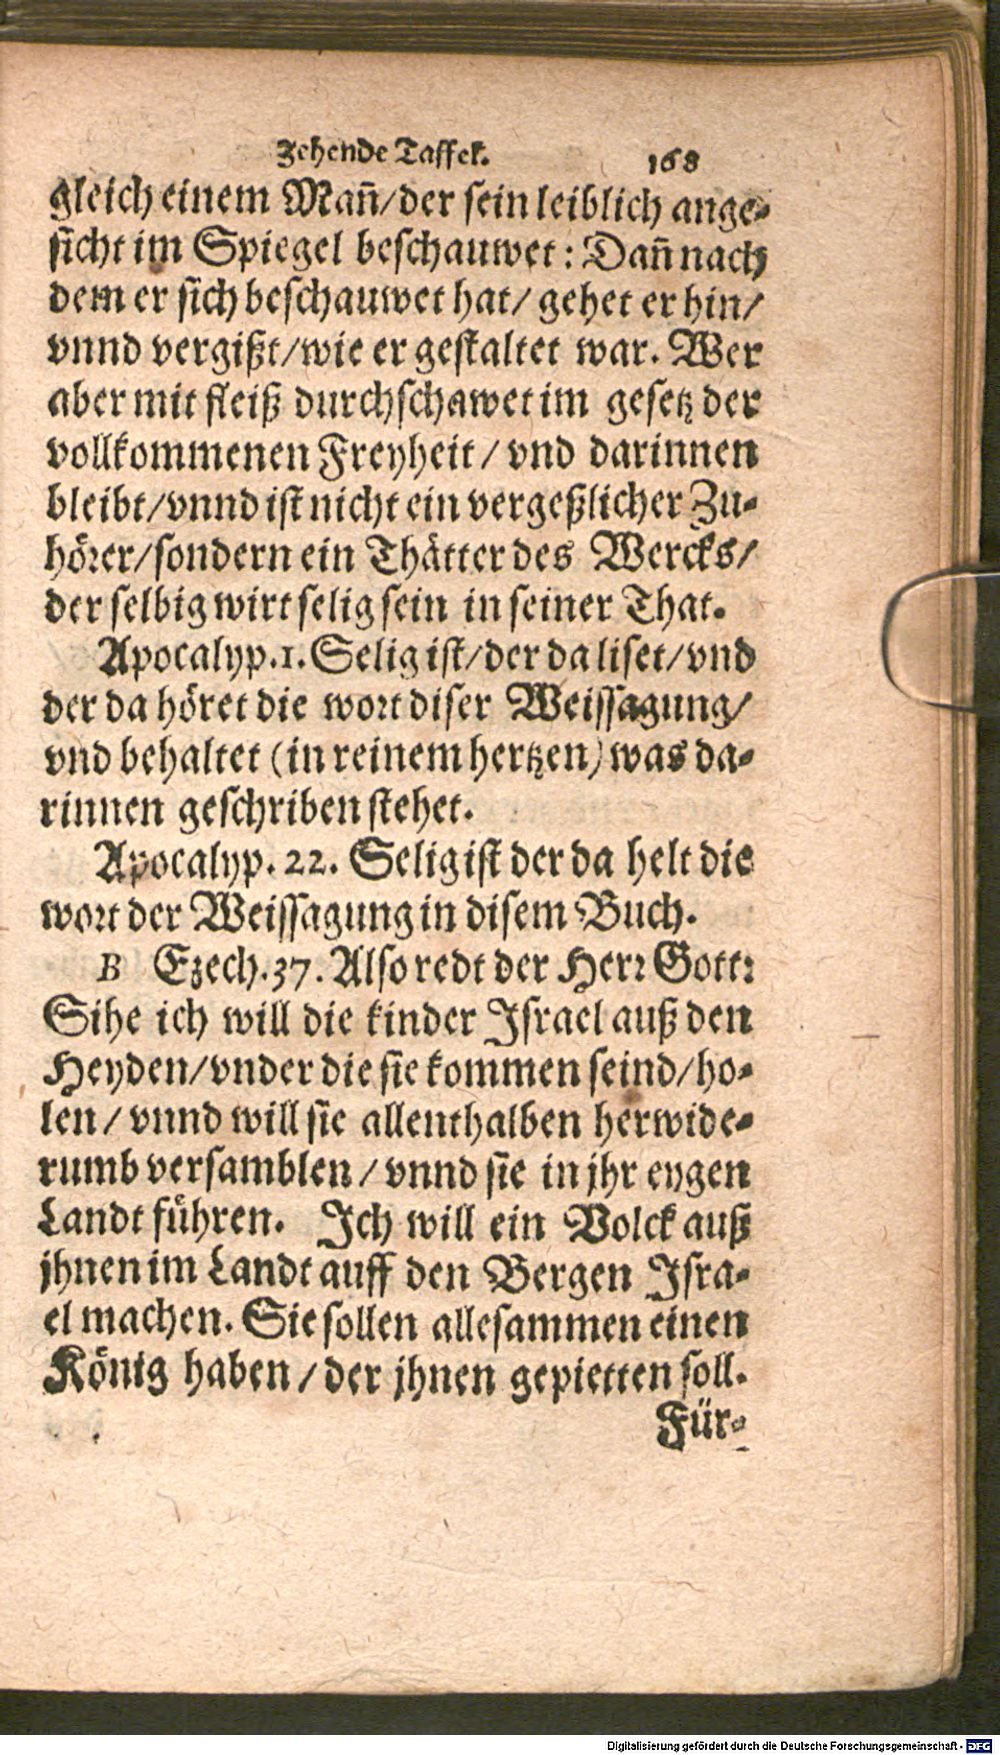 Zehende Taffel. 168
gleich einem Mañ/der sein leiblich ange-
sicht im Spiegel beschauwet: Dañ nach
dem er sich beschauwet hat/ gehet er hin/
vnnd vergißt/wie er gestaltet war. Wer
aber mit fleiß durchschawet im gesetz der
vollkommenen Freyheit / vnd darinnen
bleibt/vnnd ist nicht ein vergeßlicher Zu-
hörer/sondern ein Thätter des Wercks/
der selbig wirt selig sein in seiner That.
Apocalyp.1. Selig ist/der da liset/vnd
der da höret die wort diser Weissagung/
vnd behaltet (in reinem hertzen) was da-
rinnen geschriben stehet.
Apocalyp. 22. Selig ist der da helt die
wort der Weissagung in disem Buch.
B Ezech.37. Also redt der Herr Gott:
Sihe ich will die kinder Israel auß den
Heyden/vnder die sie kommen seind/ho-
len / vnnd will sie allenthalben herwide-
rumb versamblen / vnnd sie in jhr eygen
Landt führen. Ich will ein Volck auß
jhnen im Landt auff den Bergen Isra-
el machen. Sie sollen allesammen einen
König haben / der jhnen gepietten soll.
Für-
Digitalisierung gefördert durch die Deutsche Forschungsgemeinschaft - DFG